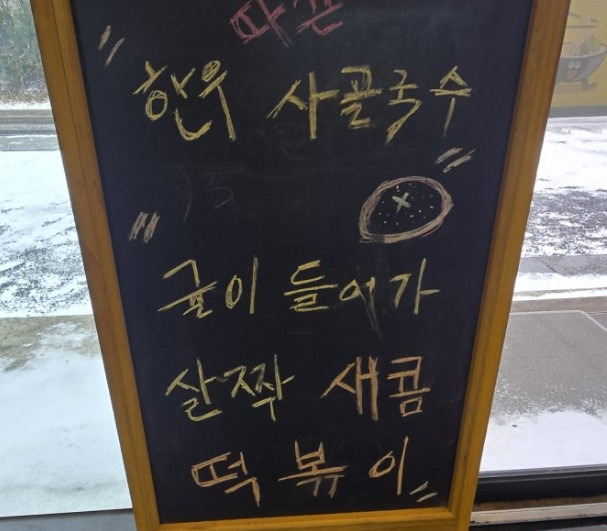 따끈
"한우 사골국수"
"귤이 들어가
살짝 새콤
떡볶이"